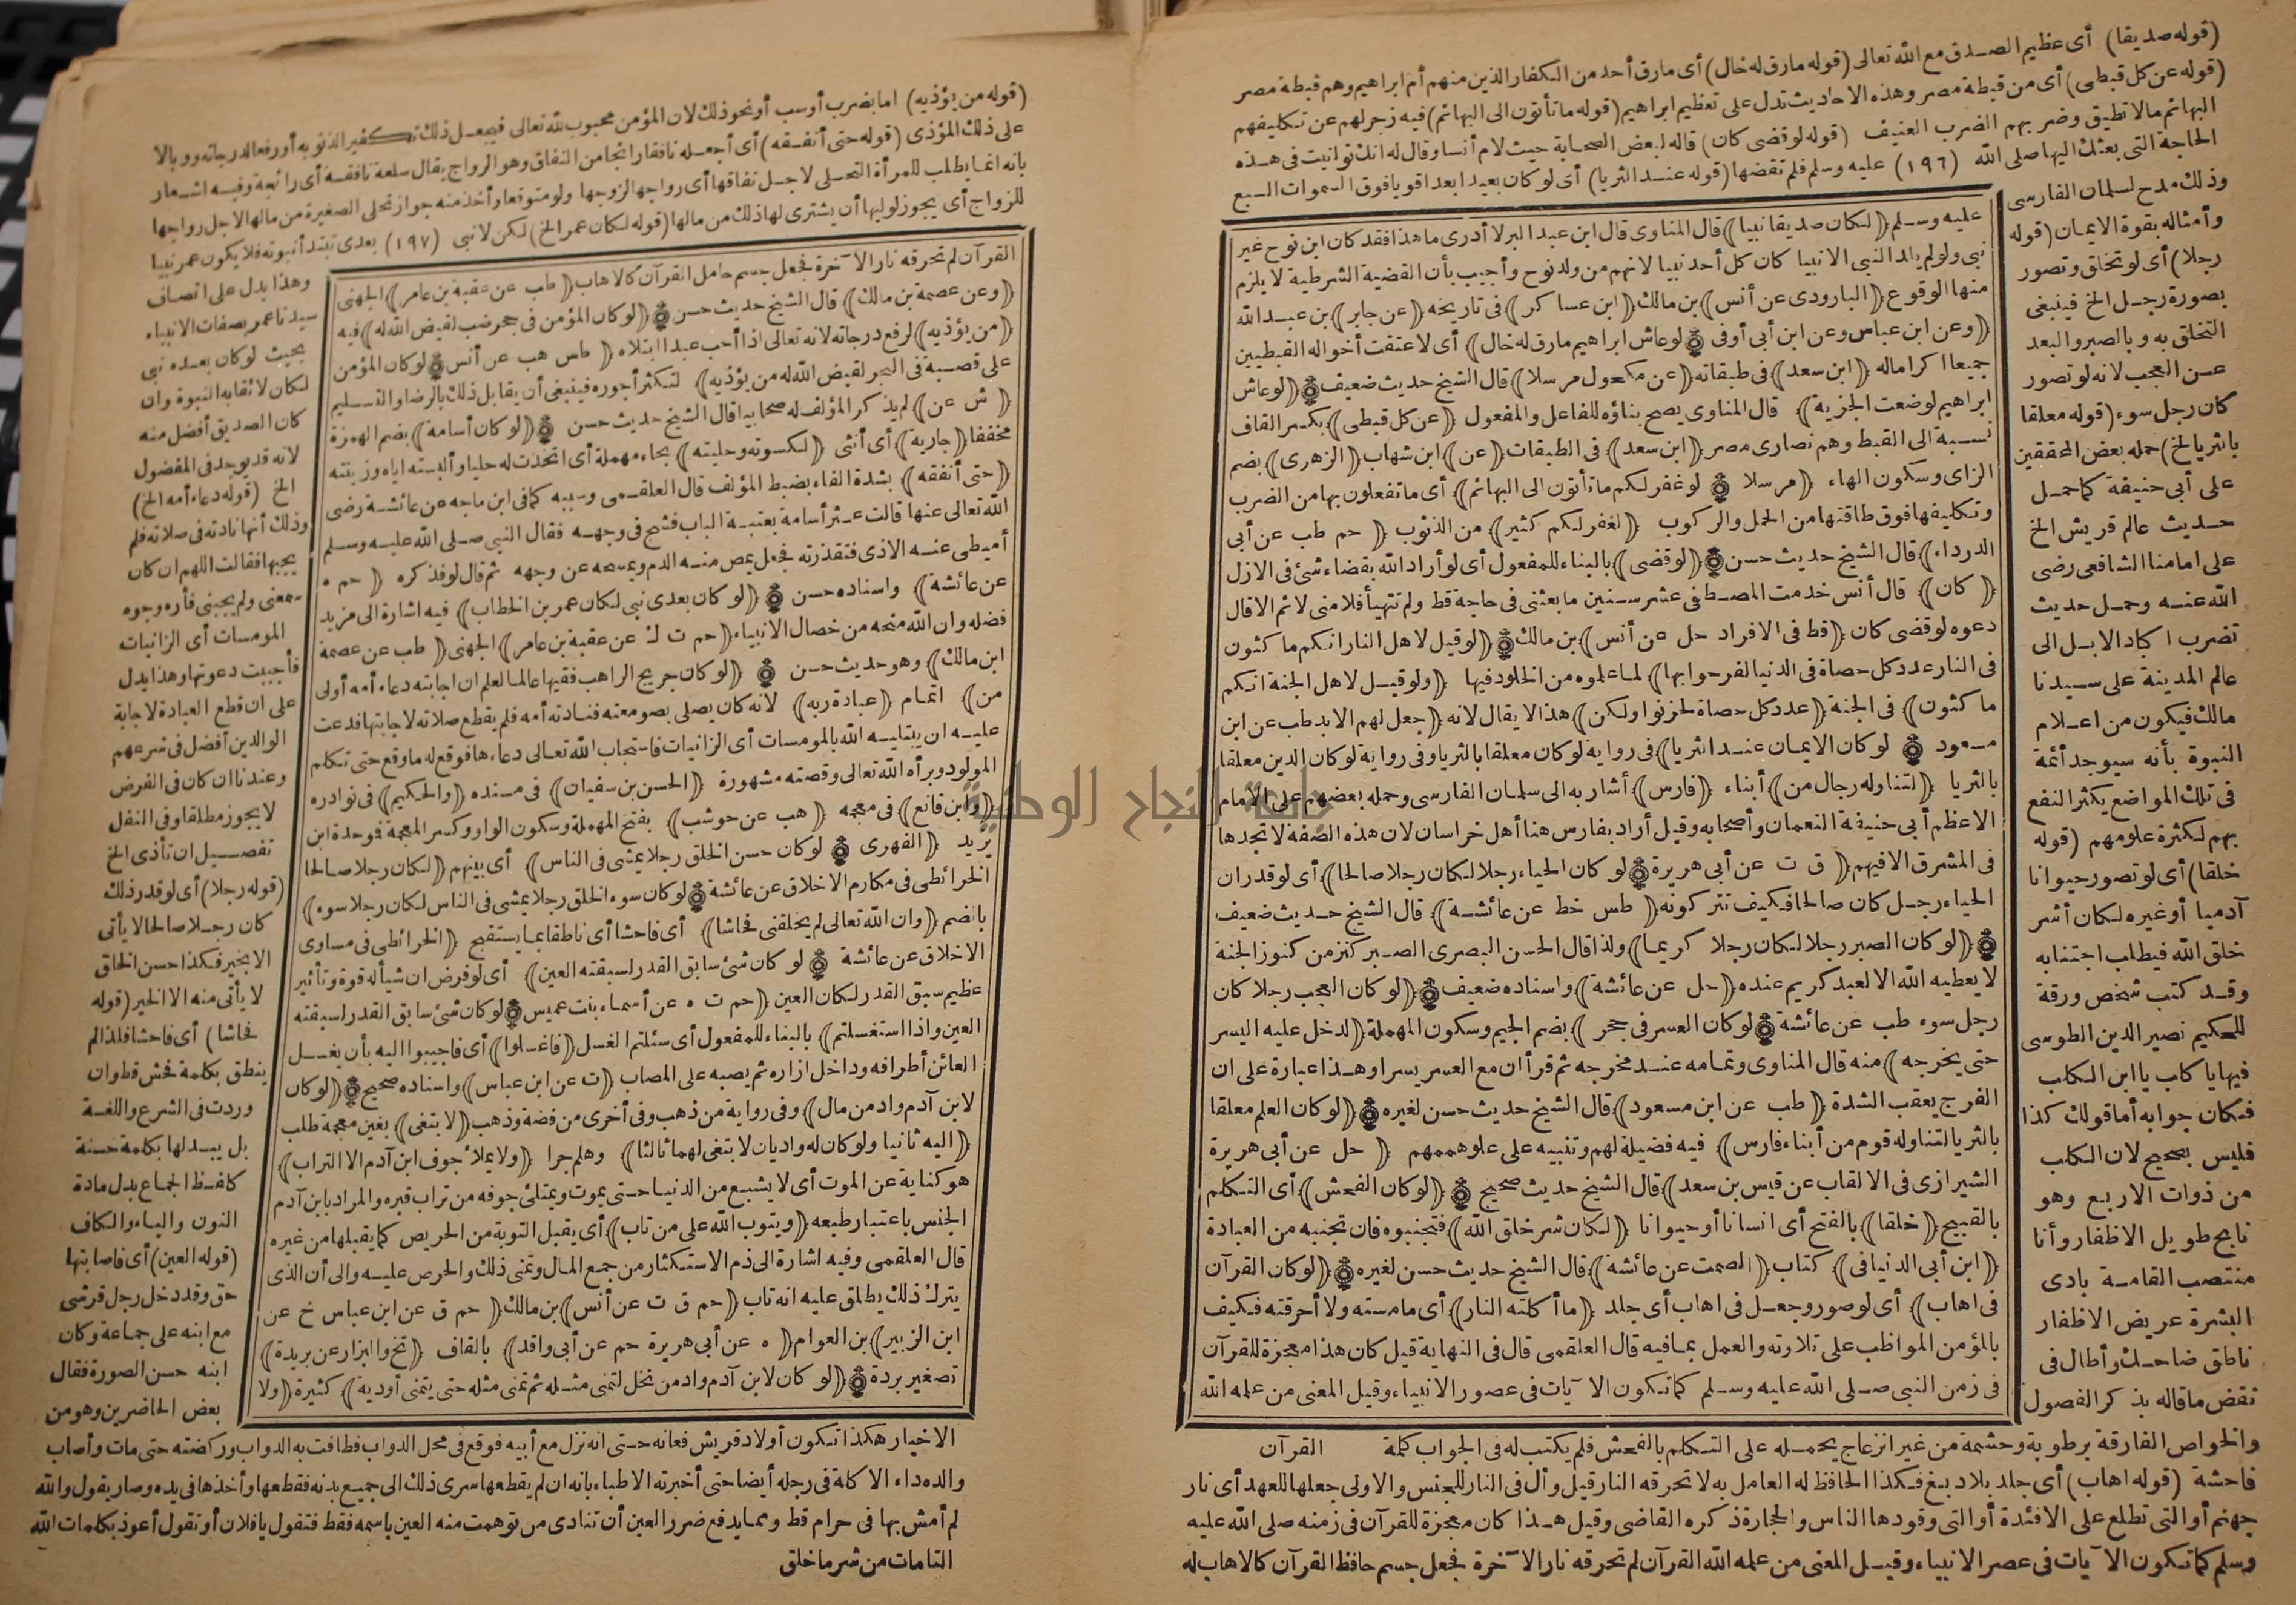 (قوله صديقا) أى عظيم الصدق مع الله تعالى (قوله مارق له خال) أى مارق أحد من الكفار الذين منهم أم ابراهيم وهم قبطة مصر
(قوله عن كل قبطى) أى من قبطة مصر وهذه الاحاديث تدل على تعظيم ابراهيم (قوله ما تأتون الى البهائم) فيه زجر لهم عن تكليفهم
البهائم مالا تطيق وضربهم الضرب العنيف (قوله لو قضى كان) قاله لبعض الصحابة حيث لام أنسا وقال له انك توانيت فى هذه
الحاجة التى بعثك اليها صلى الله (١٩٦) عليه وسلم فلم تقضها (قوله عند الثريا) أى لو كان بعيدا بعدا قويا فوق السموات السبع
وذلك مدح لسلمان الفارسى
وأمثاله بقوة الايمان (قوله
رجلا) أى لو تخلق وتصور
بصورة رجل الخ فينبغى
التخلق به وبالصبر والبعد
عن العجب لانه لو تصور
كان رجل سوء (قوله معلقا
بالثريا الخ) حمله بعض المحققين
على أبى حنيفة كما حمل
حديث عالم قريش الخ
على امامنا الشافعى رضى
الله عنه وحمل حديث
تضرب اكباد الابل الى
عالم المدينة على سيدنا
مالك فيكون من اعلام
النبوة بأنه سيوجد أئمة
فى تلك المواضع يكثر النفع
بهم لكثرة علومهم (قوله
خلقا) أى لو تصور حيوانا
آدميا أو غيره لكان أشر
خلق الله فيطلب اجتنابه
وقد كتب شخص ورقة
للحكيم نصير الدين الطوسى
فيها يا كلب يا ابن الكلب
فكان جوابه أما قولك كذا
فليس بصحيح لان الكلب
من ذوات الاربع وهو
نابح طويل الاظفار وأنا
منتصب القامة بادى
البشرة عريض الاظفار
ناطق ضاحك وأطال فى
نقض ما قاله بذكر الفصول
عليه وسلم (لكان صديقا نبيا) قال المناوى قال ابن عبد البر لا أدرى ما هذا فقد كان ابن نوح غير
نبى ولو لم يلد النبى الا نبيا كان كل أحد نبيا لانهم من ولد نوح وأجيب بأن القضية الشرطية لا يلزم
منها الوقوع (البارودى عن أنس) بن مالك (ابن عساكر) فى تاريخه (عن جابر) بن عبد الله
(وعن ابن عباس وعن ابن أبى أوفى ۞ لو عاش ابراهيم مارق له خال) أى لاعتقت أخواله القبطيين
جميعا اكراما له (ابن سعد) فى طبقاته (عن مكحول مرسلا) قال الشيخ حديث ضعيف ۞ (لو عاش
ابراهيم لوضعت الجزية) قال المناوى يصح بناؤه للفاعل والمفعول (عن كل قبطى) بكسر القاف
نسبة الى القبط وهم نصارى مصر (ابن سعد) فى الطبقات (عن) ابن شهاب (الزهرى) بضم
الزاى وسكون الهاء (مرسلا ۞ لو غفر لكم ما تأتون الى البهائم) أى ما تفعلون بها من الضرب
وتكليفها فوق طاقتها من الحمل والركوب (لغفر لكم كثير) من الذنوب (حم طب عن أبى
الدرداء) قال الشيخ حديث حسن ۞ (لو قضى) بالبناء للمفعول أى لو أراد الله بقضاء شئ فى الازل
(كان) قال أنس خدمت المصطفى عشر سنين ما بعثنى فى حاجة قط ولم تتهيأ فلامنى لائم الا قال
دعوه لو قضى كان (قط فى الافراد حل عن أنس) بن مالك ۞ (لو قيل لاهل النار انكم ماكثون
فى النار عدد كل حصاة فى الدنيا لفرحوا بها) لما علموه من الخلود فيها (ولو قيل لاهل الجنة انكم
ماكثون) فى الجنة (عدد كل حصاة لحزنوا ولكن) هذا لا يقال لانه (جعل لهم الابد طب عن ابن
مسعود ۞ لو كان الايمان عند الثريا) فى رواية لو كان معلقا بالثريا وفى رواية لو كان الدين معلقا
بالثريا (لتناوله رجال من) أبناء (فارس) أشار به الى سلمان الفارسى وحمله بعضهم على الامام
الاعظم أبى حنيفة النعمان وأصحابه وقيل أراد بفارس هنا أهل خراسان لان هذه الصفة لا تجدها
فى المشرق الا فيهم (ق ت عن أبى هريرة ۞ لو كان الحياء رجلا لكان رجلا صالحا) أى لو قدر ان
الحياء رجل كان صالحا فكيف تتركونه (طس خط عن عائشة) قال الشيخ حديث ضعيف
۞ (لو كان الصبر رجلا لكان رجلا كريما) ولذا قال الحسن البصرى الصبر كنز من كنوز الجنة
لا يعطيه الله الا لعبد كريم عنده (حل عن عائشة) واسناده ضعيف ۞ (لو كان العجب رجلا كان
رجل سوء طب عن عائشة ۞ لو كان العسر فى جحر) بضم الجيم وسكون المهملة (لدخل عليه اليسر
حتى يخرجه) منه قال المناوى وتمامه عند مخرجه ثم قرأ ان مع العسر يسرا وهذا عبارة على ان
الفرج يعقب الشدة (طب عن ابن مسعود) قال الشيخ حديث حسن لغيره ۞ (لو كان العلم معلقا
بالثريا لتناوله قوم من أبناء فارس) فيه فضيلة لهم وتنبيه على علو هممهم (حل عن أبى هريرة
الشيرازى فى الالقاب عن قيس بن سعد) قال الشيخ حديث صحيح ۞ (لو كان الفحش) أى التكلم
بالقبيح (خلقا) بالفتح أى انسانا أو حيوانا (لكان شر خلق الله) فتجنبوه فان تجنبه من العبادة
(ابن أبى الدنيا فى) كتاب (الصمت عن عائشة) قال الشيخ حديث حسن لغيره ۞ (لو كان القرآن
فى اهاب) أى لو صور وجعل فى اهاب أى جلد (ما أكلته النار) أى ما مسته ولا أحرقته فكيف
بالمؤمن المواظب على تلاوته والعمل بما فيه قال العلقمى قال فى النهاية قيل كان هذا معجزة للقرآن
فى زمن النبى صلى الله عليه وسلم كما تكون الآيات فى عصور الانبياء وقيل المعنى من علمه الله
والخواص الفارقة برطوبة وحشمة من غير انزعاج يحمله على التكلم بالفحش فلم يكتب له فى الجواب كلمة القرآن
فاحشة (قوله اهاب) أى جلد بلا دبغ فكذا الحافظ له العامل به لا تحرقه النار قيل وأل فى النار للجنس والاولى جعلها للعهد أى نار
جهنم أو التى تطلع على الافئدة أو التى وقودها الناس والحجارة ذكره القاضى وقيل هذا كان معجزة للقرآن فى زمنه صلى الله عليه
وسلم كما تكون الآيات فى عصر الانبياء وقيل المعنى من علمه الله القرآن لم تحرقه نار الآخرة فجعل جسم حافظ القرآن كالاهاب له
(قوله من يؤذيه) اما بضرب أو سب أو نحو ذلك لان المؤمن محبوب لله تعالى فيجعل ذلك تكفير الذنوبه أو رفعا لدرجاته ووبالا
على ذلك المؤذى (قوله حتى أنفقه) أى أجعله نافقا رائجا من النفاق وهو الرواج يقال سلعة نافقة أى رائجة وفيه اشعار
بانه انما يطلب للمرأة التحلى لاجل نفاقها أى رواجها لزوجها ولو متوقعا وأخذ منه جواز تحلى الصغيرة من مالها لاجل رواجها
للزواج أى يجوز لوليها أن يشترى لها ذلك من مالها (قوله لكان عمر الخ) لكن لا نبى (١٩٧) بعدى تبتدأ نبوته فلا يكون عمر نبيا
القرآن لم تحرقه نار الآخرة فجعل جسم حامل القرآن كالاهاب (طب عن عقبة بن عامر) الجهنى
(وعن عصمة بن مالك) قال الشيخ حديث حسن ۞ (لو كان المؤمن فى جحر ضب لقيض الله له) فيه
(من يؤذيه) لرفع درجاته لانه تعالى اذا أحب عبدا ابتلاه (طس هب عن أنس ۞ لو كان المؤمن
على قصبة فى البحر لقيض الله له من يؤذيه) لتكثر أجوره فينبغى أن يقابل ذلك بالرضا والتسليم
(ش عن) لم يذكر المؤلف له صحابيا قال الشيخ حديث حسن ۞ (لو كان أسامة) بضم الهمزة
مخففا (جارية) أى أنثى (لكسوته وحليته) بحاء مهملة أى اتخذت له حليا وألبسته اياه وزينته
(حتى أنفقه) بشدة الفاء بضبط المؤلف قال العلقمى وسببه كما فى ابن ماجه عن عائشة رضى
الله تعالى عنها قالت عثر أسامة بعتبة الباب فشج فى وجهه فقال النبى صلى الله عليه وسلم
أميطى عنه الاذى فتقذرته فجعل يمص منه الدم ويمسحه عن وجهه ثم قال لو فذكره (حم ه
عن عائشة) واسناده حسن ۞ (لو كان بعدى نبى لكان عمر بن الخطاب) فيه اشارة الى مزيد
فضله وان الله منحه من خصال الانبياء (حم ت ك عن عقبة بن عامر) الجهنى (طب عن عصمة
ابن مالك) وهو حديث حسن ۞ (لو كان جريج الراهب فقيها عالما لعلم ان اجابته دعاء أمه أولى
من) اتمام (عبادة ربه) لانه كان يصلى بصومعته فنادته أمه فلم يقطع صلاته لاجابتها فدعت
عليه ان يبتليه الله بالمومسات أى الزانيات فاستجاب الله تعالى دعاءها فوقع له ما وقع حتى تكلم
المولود وبرأه الله تعالى وقصته مشهورة (الحسن بن سفيان) فى مسنده (والحكيم) فى نوادره
(وابن قانع) فى معجمه (هب عن حوشب) بفتح المهملة وسكون الواو وكسر المعجمة فوحدة ابن
يزيد (الفهرى ۞ لو كان حسن الخلق رجلا يمشى فى الناس) أى بينهم (لكان رجلا صالحا
الخرائطى فى مكارم الاخلاق عن عائشة ۞ لو كان سوء الخلق رجلا يمشى فى الناس لكان رجلا سوء)
بالضم (وان الله تعالى لم يخلقنى فحاشا) أى فاحشا أى ناطقا بما يستقبح (الخرائطى فى مساوى
الاخلاق عن عائشة ۞ لو كان شئ سابق القدر لسبقته العين) أى لو فرض ان شيأ له قوة وتأثير
عظيم سبق القدر لكان العين (حم ت ه عن أسماء بنت عميس ۞ لو كان شئ سابق القدر لسبقته
العين واذا استغسلتم) بالبناء للمفعول أى سئلتم الغسل (فاغسلوا) أى فاجيبوا اليه بأن يغسل
العائن أطرافه وداخل ازاره ثم يصبه على المصاب (ت عن ابن عباس) واسناده صحيح ۞ (لو كان
لابن آدم واد من مال) وفى رواية من ذهب وفى أخرى من فضة وذهب (لابتغى) بغين معجمة طلب
(اليه ثانيا ولو كان له واديان لابتغى لهما ثالثا) وهلم جرا (ولا يملأ جوف ابن آدم الا التراب)
هو كناية عن الموت أى لا يشبع من الدنيا حتى يموت ويمتلئ جوفه من تراب قبره والمراد بابن آدم
الجنس باعتبار طبعه (ويتوب الله على من تاب) أى يقبل التوبة من الحريص كما يقبلها من غيره
قال العلقمى وفيه اشارة الى ذم الاستكثار من جمع المال وتمنى ذلك والحرص عليه والى أن الذى
يترك ذلك يطلق عليه انه تاب (حم ق ت عن أنس) بن مالك (حم ق عن ابن عباس خ عن
ابن الزبير) بن العوام (ه عن أبى هريرة حم عن أبى واقد) بالقاف (تخ والبزار عن بريدة)
تصغير بردة ۞ (لو كان لابن آدم واد من نخل لتمنى مثله ثم تمنى مثله حتى يتمنى أودية) كثيرة (ولا
وهذا يدل على اتصاف
سيدنا عمر بصفات الانبياء
بحيث لو كان بعده نبى
لكان لائقا به النبوة وان
كان الصديق أفضل منه
لانه قد يوجد فى المفضول
الخ (قوله دعاء أمه الخ)
وذلك أنها نادته فى صلاته فلم
يجبها فقالت اللهم ان كان
سمعنى ولم يجبنى فأره وجوه
المومسات أى الزانيات
فأجيبت دعوتها وهذا يدل
على ان قطع العبادة لاجابة
الوالدين أفضل فى شرعهم
وعندنا ان كان فى الفرض
لا يجوز مطلقا وفى النفل
تفصيل ان تأذى الخ
(قوله رجلا) أى لو قدر ذلك
كان رجلا صالحا لا يأتى
الا بخير فكذا حسن الخلق
لا يأتى منه الا الخير (قوله
فحاشا) أى فاحشا فلذا لم
ينطق بكلمة فحش قط وان
وردت فى الشرع واللغة
بل يبدلها بكلمة حسنة
كلفظ الجماع بدل مادة
النون والياء والكاف
(قوله العين) أى فاصابتها
حق وقد دخل رجل قرشى
مع ابنه على جماعة وكان
ابنه حسن الصورة فقال
بعض الحاضرين وهو من
الاخيار هكذا تكون أولاد قريش فعانه حتى انه نزل مع أبيه فوقع فى محل الدواب فطافت به الدواب وركضته حتى مات وأصاب
والده داء الاكلة فى رجله أيضا حتى أخبرته الاطباء بانه ان لم يقطعها سرى ذلك الى جميع بدنه فقطعها وأخذها فى يده وصار يقول والله
لم أمش بها فى حرام قط ومما يدفع ضرر العين أن تنادى من توهمت منه العين باسمه فقط فتقول يا فلان أو تقول أعوذ بكلمات الله
التامات من شر ما خلق
جامعة النجاح الوطنية